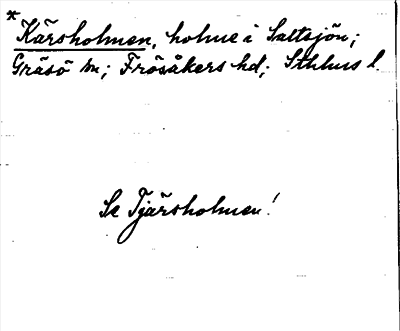 *Kärsholmen, holme i Saltsjön;
Gräsö sn; Frösåkers hd; Sthlms l.
Se Tjärsholmen!